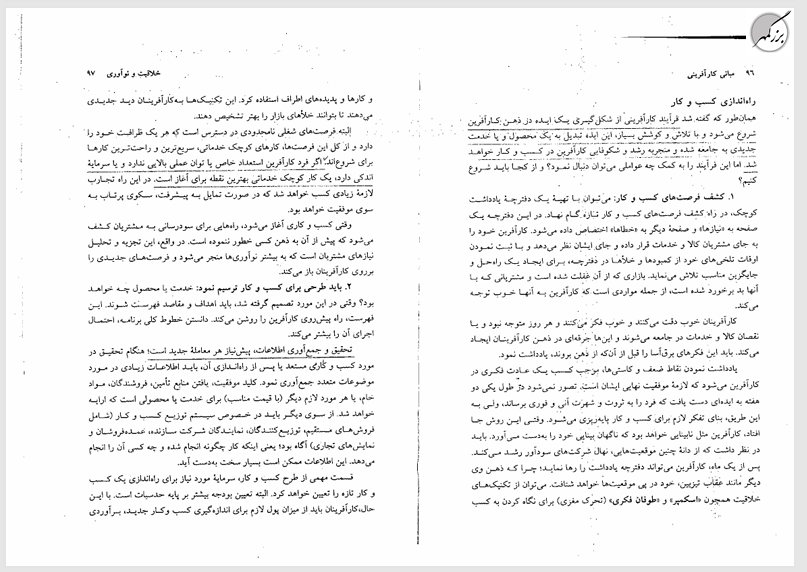 بزرگمهر
۹۶ مبانی کارآفرینی
راه‌اندازی کسب و کار
همان‌طور که گفته شد فرآیند کارآفرینی از شکل‌گیری یک ایده در ذهن کارآفرین
شروع می‌شود و با تلاش و کوشش بسیار، این ایده تبدیل به یک محصول و یا خدمت
جدیدی به جامعه شده و منجربه رشد و شکوفایی کارآفرین در کسب و کار خواهد
شد. اما این فرآیند را به کمک چه عواملی می‌توان دنبال نمود؟ و از کجا باید شروع
کنیم؟
۱. کشف فرصت‌های کسب و کار: می‌توان با تهیة یک دفترچة یادداشت
کوچک، در راه کشف فرصت‌های کسب و کار تازه گام نهاد. در این دفترچه یک
صفحه به «نیازها» و صفحة دیگر به «خطاها» اختصاص داده می‌شود. کارآفرین خود را
به جای مشتریان کالا و خدمات قرار داده و جای ایشان نظر می‌دهد و با ثبت نمودن
اوقات تلخی‌های خود از کمبودها و خلأها در دفترچه، برای ایجاد یک راه‌حل و
جایگزین مناسب تلاش می‌نماید. بازاری که از آن غفلت شده است و مشتریانی که با
آنها بد برخورد شده است، از جمله مواردی است که کارآفرین به آنها خوب توجه
می‌کند.
کارآفرینان خوب دقت می‌کنند و خوب فکر می‌کنند و هر روز متوجه نبود و یا
نقصان کالا و خدمات در جامعه می‌شوند و این‌ها جرقه‌ای در ذهن کارآفرینان ایجاد
می‌کند. باید این فکرهای برق‌آسا را قبل از آن‌که از ذهن بروند، یادداشت نمود.
یادداشت نمودن نقاط ضعف و کاستی‌ها، موجب کسب یک عادت فکری در
کارآفرین می‌شود که لازمة موفقیت نهایی ایشان است. تصور نمی‌شود در طول یکی دو
هفته به ایده‌ای دست یافت که فرد را به ثروت و شهرت آنی و فوری برساند، ولی به
این طریق، بنای تفکر لازم برای کسب و کار پایه‌ریزی می‌شود. وقتی این روش جا
افتاد، کارآفرین مثل نابینایی خواهد بود که ناگهان بینایی خود را به‌دست می‌آورد. باید
در نظر داشت که از دانة چنین موقعیت‌هایی، نهال شرکت‌های سودآور رشد می‌کند.
پس از یک ماه، کارآفرین می‌تواند دفترچه یادداشت را رها نماید؛ چرا که ذهن وی
دیگر مانند عقاب تیزبین، خود در پی موقعیت‌ها خواهد شتافت. می‌توان از تکنیک‌های
خلاقیت همچون «اسکمپر» و «طوفان فکری» (تحرک مغزی) برای نگاه کردن به کسب
خلاقیت و نوآوری ۹۷
و کارها و پدیده‌های اطراف استفاده کرد. این تکنیک‌ها به‌کارآفرینان دید جدیدی
می‌دهند تا بتوانند خلأهای بازار را بهتر تشخیص دهند.
البته فرصت‌های شغلی نامحدودی در دسترس است که هر یک ظرافت خود را
دارد و از کل این فرصت‌ها، کارهای کوچک خدماتی، سریع‌ترین و راحت‌ترین کارها
برای شروع‌اند. اگر فرد کارآفرین استعداد خاص یا توان عملی بالایی ندارد و یا سرمایة
اندکی دارد، یک کار کوچک خدماتی بهترین نقطه برای آغاز است. در این راه تجارب
لازمة زیادی کسب خواهد شد که در صورت تمایل به پیشرفت، سکوی پرتاب به
سوی موفقیت خواهد بود.
وقتی کسب و کاری آغاز می‌شود، راه‌هایی برای سودرسانی به مشتریان کشف
می‌شود که پیش از آن به ذهن کسی خطور ننموده است. در واقع، این تجزیه و تحلیل
نیازهای مشتریان است که به بیشتر نوآوری‌ها منجر می‌شود و فرصت‌های جدیدی را
برروی کارآفرینان باز می‌کند.
۲. باید طرحی برای کسب و کار ترسیم نمود: خدمت یا محصول چه خواهد
بود؟ وقتی در این مورد تصمیم گرفته شد، باید اهداف و مقاصد فهرست شوند. این
فهرست، راه پیش‌روی کارآفرین را روشن می‌کند. دانستن خطوط کلی برنامه، احتمال
اجرای آن را بیشتر می‌کند.
تحقیق و جمع‌آوری اطلاعات، پیش‌نیاز هر معاملة جدید است؛ هنگام تحقیق در
مورد کسب و کاری مستعد یا پس از راه‌اندازی آن، باید اطلاعات زیادی در مورد
موضوعات متعدد جمع‌آوری نمود. کلید موفقیت، یافتن منابع تأمین، فروشندگان، مواد
خام، یا هر مورد لازم دیگر (با قیمت مناسب) برای خدمت یا محصولی است که ارایه
خواهد شد. از سوی دیگر باید در خصوص سیستم توزیع کسب و کار (شامل
فروش‌های مستقیم، توزیع‌کنندگان، نمایندگان شرکت سازنده، عمده‌فروشان و
نمایش‌های تجاری) آگاه بود؛ یعنی اینکه کار چگونه انجام شده و چه کسی آن را انجام
می‌دهد. این اطلاعات ممکن است بسیار سخت به‌دست آید.
قسمت مهمی از طرح کسب و کار، سرمایة مورد نیاز برای راه‌اندازی یک کسب
و کار تازه را تعیین خواهد کرد. البته تعیین بودجه بیشتر بر پایه حدسیات است. با این
حال،کارآفرینان باید از میزان پول لازم برای اندازه‌گیری کسب وکار جدید، برآوردی